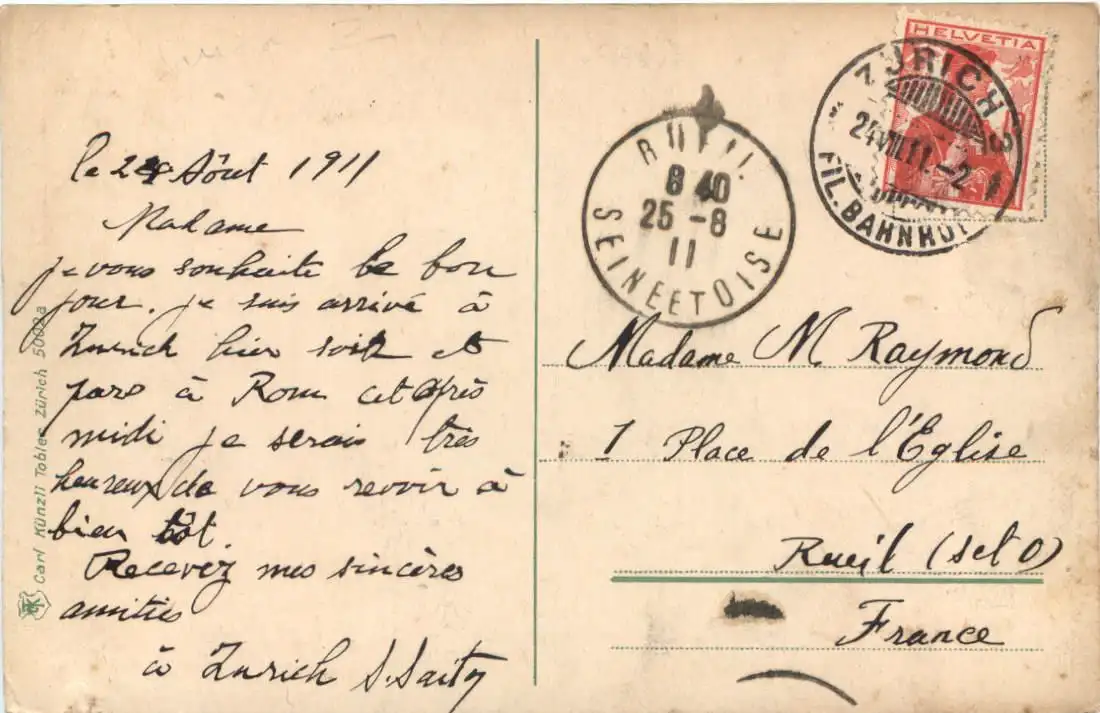 le 24 Aôut 1911
Madame
je vous souhaite le bon
jour. je suis arrivé à
Zurich hier soir et
pars à Rom cet après
midi je serais très
heureux de vous revoir à
bien tôt.
Recevez mes sincères
amitiés
à Zurich S.
Carl Künzli Tobler Zürich 5002a
HELVETIA
ZÜRICH 3
24 VIII.11.-2
FIL. BAHNHOF
RUEIL
8 40
25 -8
11
SEINE ET OISE
Madame M. Raymond
1 Place de l'Eglise
Rueil (s et o)
France